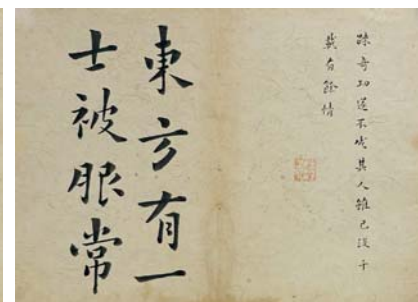 踈奇功遂不成其人雖已沒千
載有餘情
東方有一
士被服常